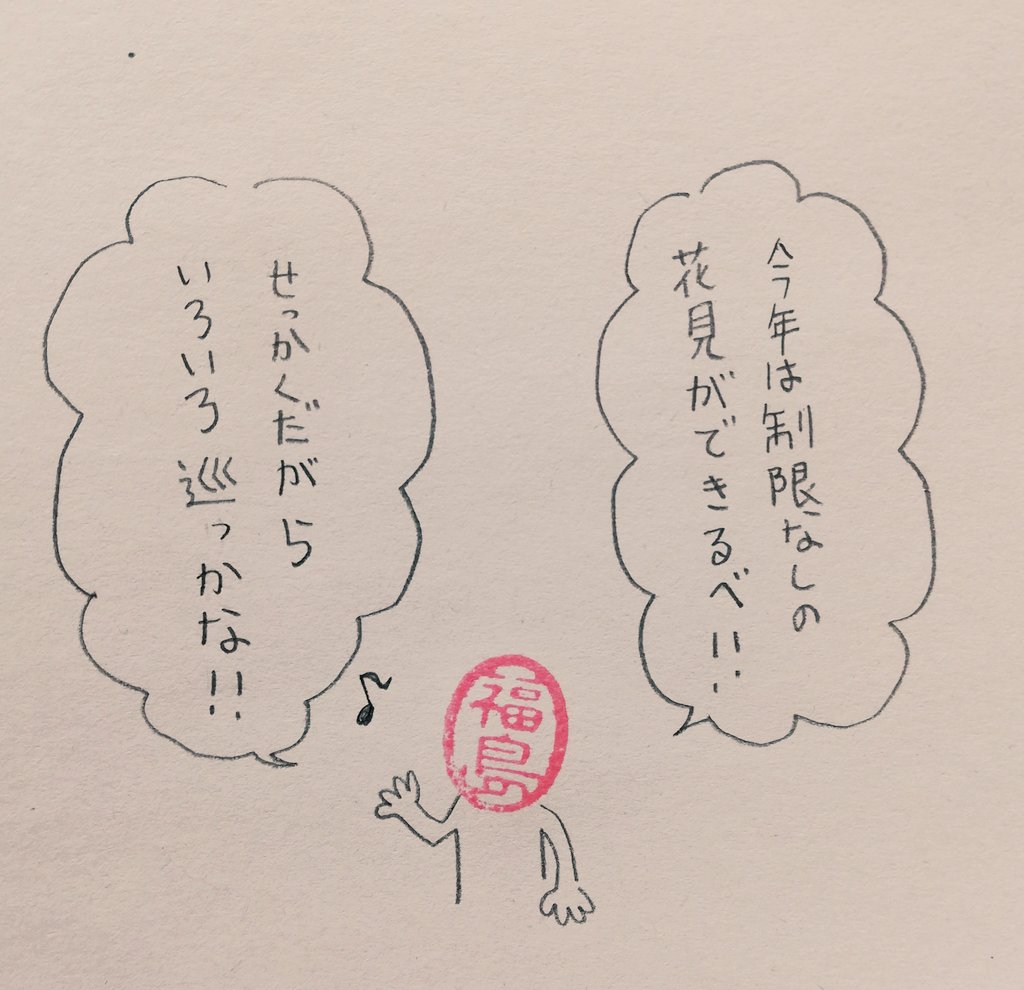 今年は制限なしの
花見ができるべ!!
せっかくだがら
いろいろ巡っかな!!
福島